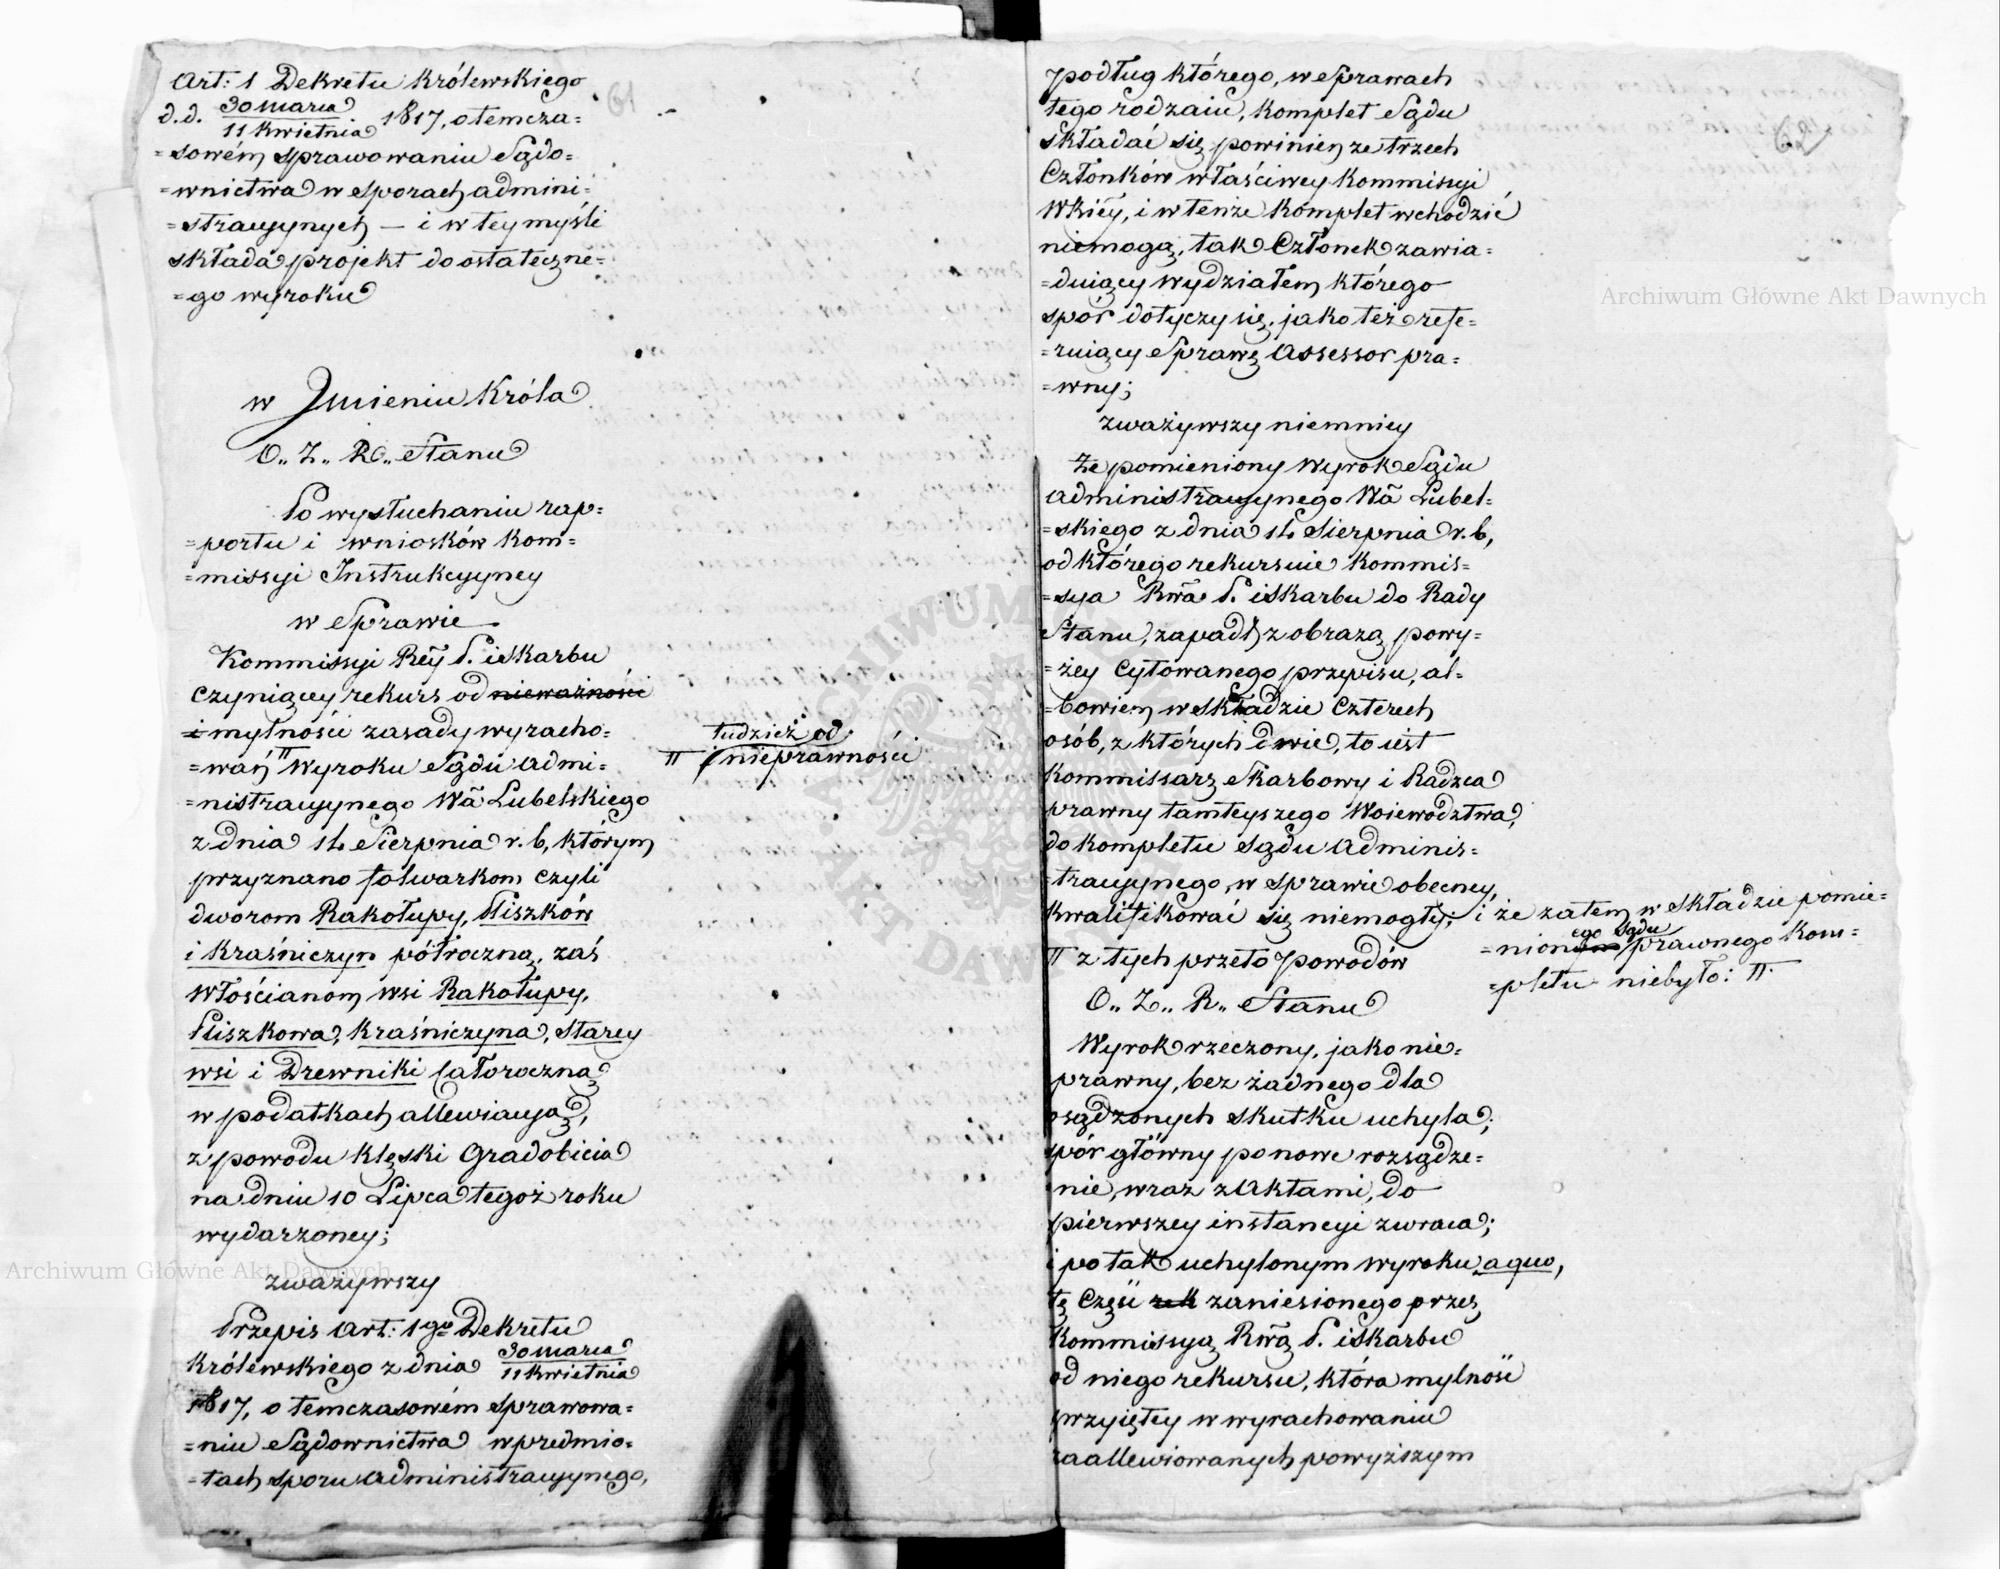 Art: 1 Dekretu Królewskiego
d.d. 30 Marca / 11 Kwietnia 1817, o temcza=
=sowém sprawowaniu Sądo=
=wnictwa w Sporach admini=
=stracyynych — i w tey myśli
składa projekt do ostateczne=
=go wyroku
w Jmieniu Króla
O.. Z.. R.. Stanu
Po wysłuchaniu rap=
=portu i wniosków Kom=
=missyi Instrukcyyney
w Sprawie
Kommissyi Rẽy P. i Skarbu
czyniącey rekurs od nieważności
i mylności zasady wyracho=
=wań π Wyroku Sądu Admi=
=nistracyynego Wã Lubelskiego
z dnia 14 Sierpnia r. b, którym
przyznano folwarkom czyli
dworom Rakołupy, Pliszków
i Kraśniczyn półroczną, zaś
Włościanom wsi Rakołupy,
Pliszkowa, Kraśniczyna, Starey
wsi i Drewniki całoroczną
w podatkach allewiacyą,
z powodu klęski Gradobicia
na dniu 10 Lipca tegoż roku
wydarzoney;
zważywszy
Przepis Art: 1go Dekretu
Królewskiego z dnia 30 Marca / 11 Kwietnia
1817, o temczasowém sprawowa=
=niu Sądownictwa w przedmio=
=tach sporu administracyynego,
tudzież od
π nieprawności
61
podług którego, w Sprawach
tego rodzaiu, komplet Sądu
składać się powinien ze trzech
Członków właściwey Kommissyi
Wkiéy, i w tenże komplet wchodzić
niemogą, tak Członek zawia=
=duiący wydziałem którego
spór dotyczy się, jako też refe=
=ruiący Sprawę Assessor pra=
=wny;
zważywszy niemniey
Że pomieniony Wyrok Sądu
Administracyynego Wã Lubel=
=skiego z dnia 14 Sierpnia r. b,
od którego rekursuie Kommis=
=sya Rwã P. i Skarbu do Rady
Stanu, zapadł z obrazą powy=
=żey cytowanego przepisu, al=
=bowiem w składzie czterech
osób, z których dwie, to iest
Kommissarz Skarbowy i Radzca
prawny tamteyszego Woiewództwa,
do kompletu Sądu adminis=
=tracyynego, w sprawie obecney,
kwalifikować się niemogły; i że zatem w składzie pomie=
=nionego Sądu prawnego kom=
=pletu niebyło: π
π z tych przeto powodów
O.. Z.. R.. Stanu
Wyrok rzeczony, jako nie=
prawny, bez żadnego dla
osądzonych skutku uchyla;
spór główny po nowe rozsądze=
nie, wraz z aktami, do
pierwszey instancyi zwraca;
i po tak uchylonym wyroku a quo,
tę część rek zaniesionego przez
Kommissyą Rwą P. i Skarbu
od niego rekursu, która mylność
przyiętey w wyrachowaniu
zaallewiowanych powyższym
62
Archiwum Główne Akt Dawnych
Archiwum Główne Akt Dawnych
ARCHIWUM GŁÓWNE AKT DAWNYCH